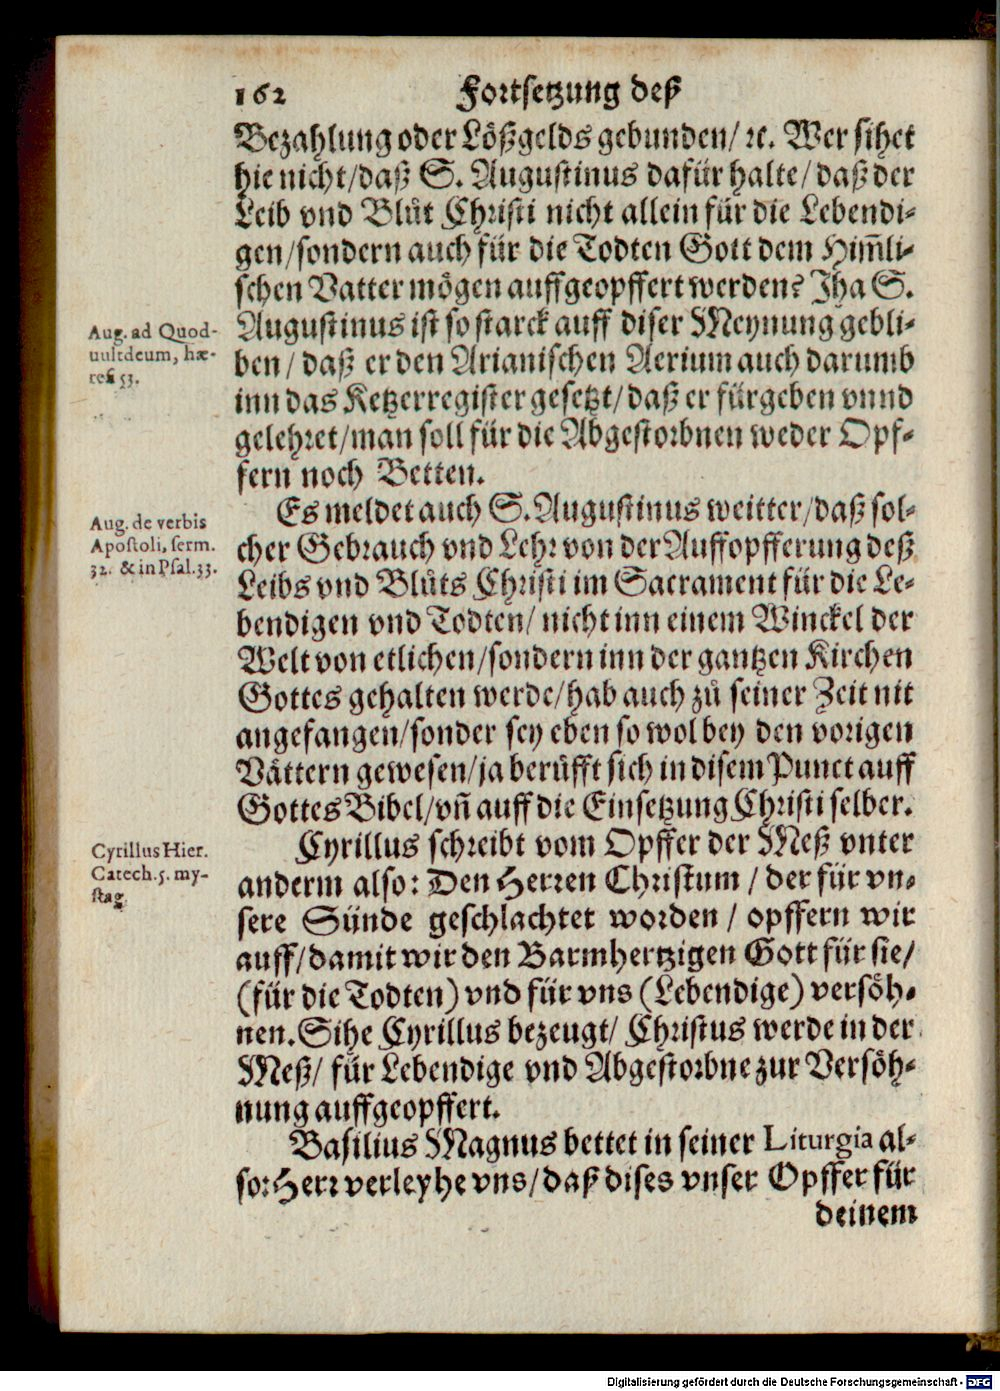 162 Fortsetzung deß
Bezahlung oder Lößgelds gebunden/ ꝛc. Wer sihet
hie nicht/ daß S. Augustinus dafür halte/ daß der
Leib vnd Blůt Christi nicht allein für die Lebendi-
gen/ sondern auch für die Todten Gott dem Him̃li-
schen Vatter mögen auffgeopffert werden? Jha S.
Augustinus ist so starck auff diser Meynung gebli-
ben/ daß er den Arianischen Aerium auch darumb
inn das Ketzerregister gesetzt/ daß er fürgeben vnnd
gelehret/ man soll für die Abgestorbnen weder Opf-
fern noch Betten.
Aug. ad Quod-
uultdeum, hæ-
res 53.
Es meldet auch S. Augustinus weitter/ daß sol-
cher Gebrauch vnd Lehr von der Auffopfferung deß
Leibs vnd Blůts Christi im Sacrament für die Le-
bendigen vnd Todten/ nicht inn einem Winckel der
Welt von etlichen/ sondern inn der gantzen Kirchen
Gottes gehalten werde/ hab auch zů seiner Zeit nit
angefangen/ sonder sey eben so wol bey den vorigen
Vättern gewesen/ ja berůfft sich in disem Punct auff
Gottes Bibel/ vñ auff die Einsetzung Christi selber.
Aug. de verbis
Apostoli, serm.
32. & in Psal. 33.
Cyrillus schreibt vom Opffer der Meß vnter
anderm also: Den Herren Christum/ der für vn-
sere Sünde geschlachtet worden/ opffern wir
auff/ damit wir den Barmhertzigen Gott für sie/
(für die Todten) vnd für vns (Lebendige) versöh-
nen. Sihe Cyrillus bezeugt/ Christus werde in der
Meß/ für Lebendige vnd Abgestorbne zur Versöh-
nung auffgeopffert.
Cyrillus Hier.
Catech. 5. my-
stag.
Basilius Magnus bettet in seiner Liturgia al-
so: Herr verleyhe vns/ daß dises vnser Opffer für
deinem
Digitalisierung gefördert durch die Deutsche Forschungsgemeinschaft - DFG